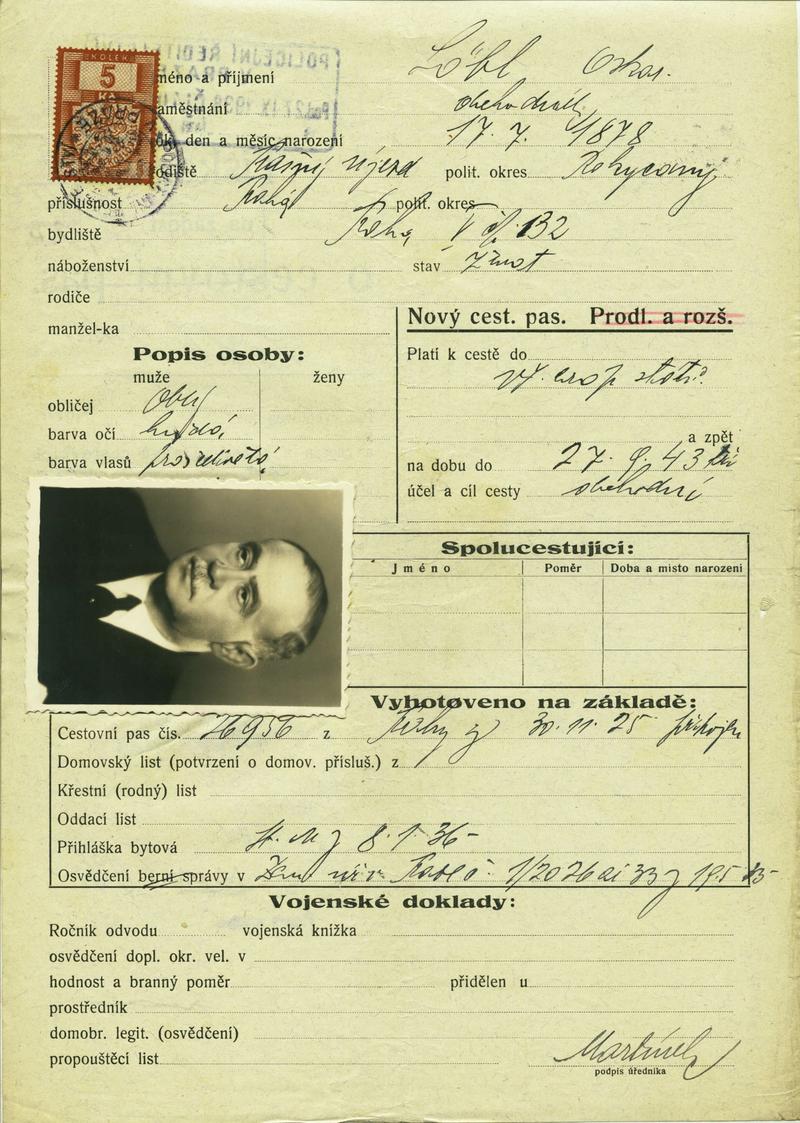 KOLEK
5
Kč
POLICEJNÍ ŘEDITELSTVÍ
Jméno a příjmení Löbl Oskar
zaměstnání obchodník
Rok, den a měsíc narození 17. 7. 1878
rodiště Újezd polit. okres Rokycany
příslušnost Praha polit. okres
bydliště Praha V čp. 132
náboženství stav ženat
rodiče
manžel-ka
Nový cest. pas. Prodl. a rozš.
Popis osoby:
muže ženy
Platí k cestě do
vš. evrop. států
obličej obl.
barva očí hnědá,
barva vlasů prošedivělá
a zpět
na dobu do 27. 9. 43
účel a cíl cesty obchodní
Spolucestující:
Jméno Poměr Doba a místo narození
Vyhotoveno na základě:
Cestovní pas čís. 26956 z Prahy z 30. 11. 25
Domovský list (potvrzení o domov. přísluš.) z
Křestní (rodný) list
Oddací list
Přihláška bytová z 8. 1. 36
Osvědčení berní správy v
Vojenské doklady:
Ročník odvodu vojenská knížka
osvědčení dopl. okr. vel. v
hodnost a branný poměr přidělen u
prostředník
domobr. legit. (osvědčení)
propouštěcí list
podpis úředníka